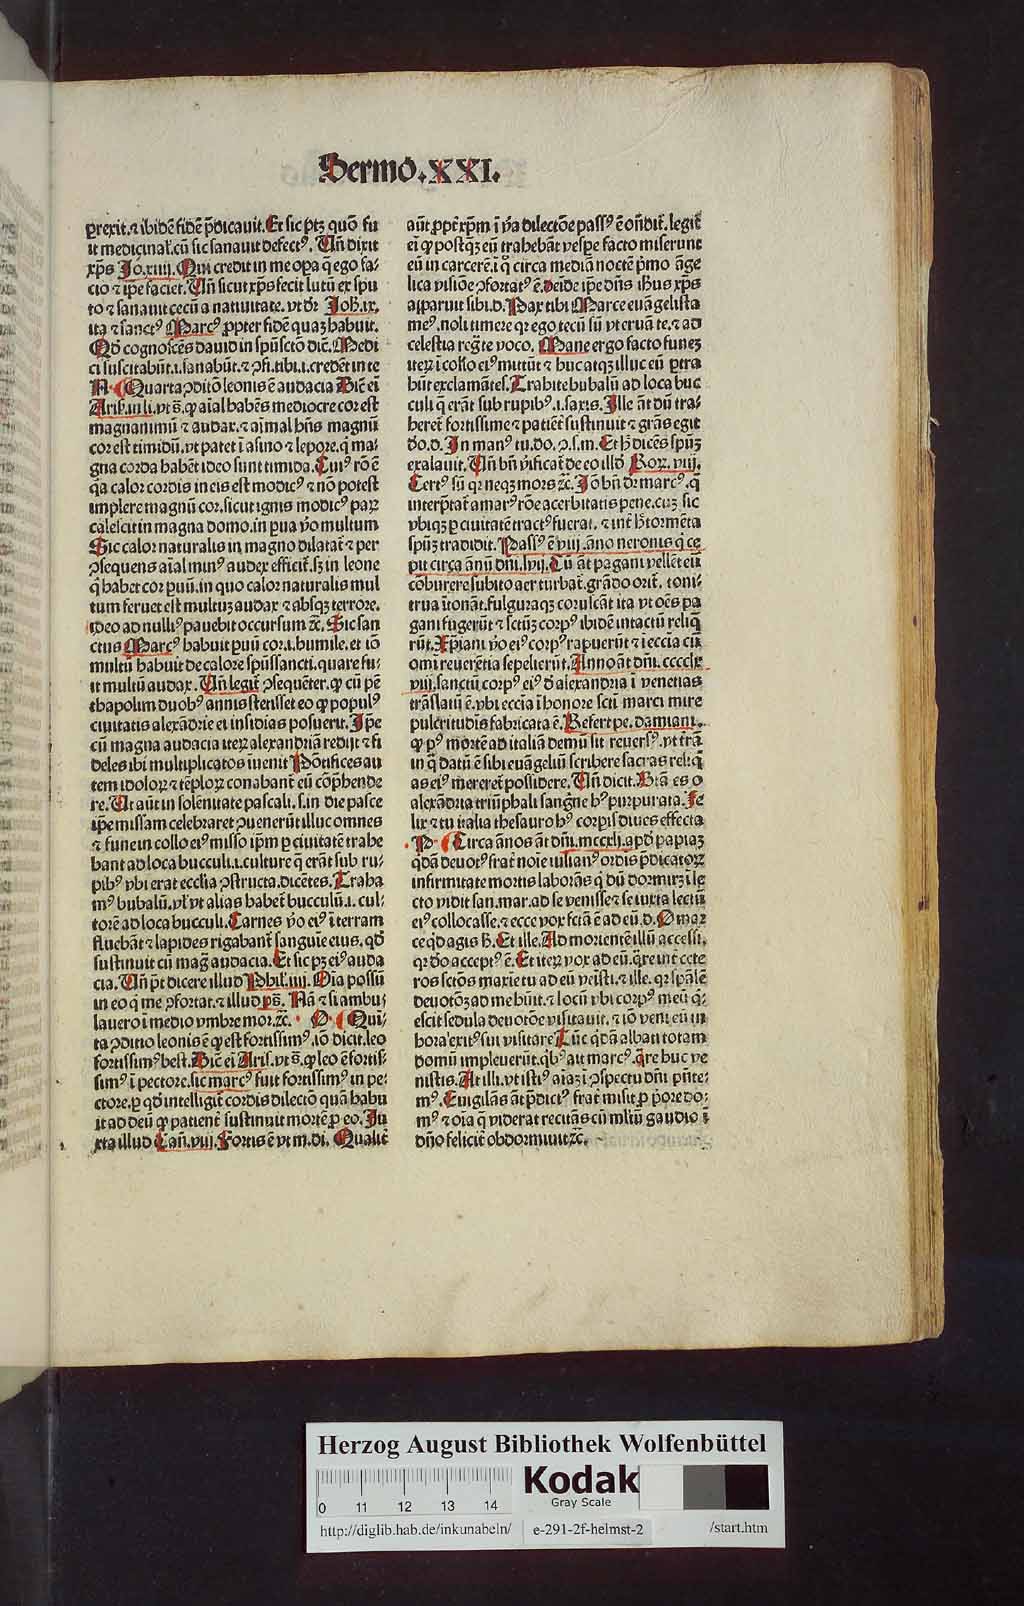 Sermo.XXI.
prexit.⁊ ibidē fidē p̄dicauit.Et sic ptꝫ quō fu
it medicinał.cū sic sanauit defectꝰ.Uñ dixit
xp̄s Jo.xiiij.Qui credit in me oꝑa q̄ ego fa-
cio ⁊ ip̄e faciet.Uñ sicut xp̄s fecit lutū ex spu
to ⁊ sanauit cecū a natiuitate.vt dr̄ Joh.ix.
ita ⁊ sanctꝰ Marcꝰ ꝓpter fidē quaꝫ habuit.
Qd̄ cognoscēs dauid in spūscto dic̄.Medi
ci suscitabūt.i.sanabūt.⁊ ꝯfi.tibi.i.credēt in te
N Quarta ꝯditō leonis ē audacia Dic̄ ei
Aris.in li.vt s̄.ꝙ aīal habēs mediocre cor est
magnanimū ⁊ audax.⁊ aīmal hn̄s magnū
cor est timidū.vt patet ī asino ⁊ lepore.q̄ ma-
gna corda habēt ideo sunt timida.Cuiꝰ rō ē
q̄a calor cordis in eis est modicꝰ ⁊ nō potest
implere magnū cor.sicut ignis modicꝰ paꝝ
calescit in magna domo.in ꝑua ꝟo multum
Sic calor naturalis in magno dilatat̄ ⁊ per
ꝯsequens aīal minꝰ audex efficit̄.sꝫ in leone
q̄ habet cor ꝑuū.in quo calor naturalis mul
tum feruet est multuꝫ audax ⁊ absqꝫ terrore.
ideo ad nulliꝰ pauebit occursum ⁊c̄.Sic san
ctus Marcꝰ habuit ꝑuū cor.i.humile.et iō
multū habuit de calore spūssancti.quare fu-
it multū audax.Uñ legit̄ ꝯsequēter.ꝙ cū pē
thapolim duobꝰ annis stetisset eo ꝙ populꝰ
ciuitatis alexādrie ei insidias posuerit.Ip̄e
cū magna audacia iteꝝ alexandriā redijt ⁊ fi
deles ibi multiplicatos īuenit Pōtifices au
tem idoloꝝ ⁊ tēploꝝ conabant̄ eū cōp̄hende
re.Ut aūt in solenitate pascali.s.in die pasce
ip̄e missam celebraret ꝯuenerūt illuc omnes
⁊ fune in collo eiꝰ misso ip̄m ꝑ ciuitatē trahe
bant ad loca bucculi.i.culture q̄ erāt sub ru-
pibꝰ vbi erat ecclīa ꝯstructa.dicētes.Traha
mꝰ bubalū.vł vt alias habet̄ bucculū.i.cul-
torē ad loca bucculi.Carnes ꝟo eiꝰ ī terram
fluebāt ⁊ lapides rigabant̄ sanguīe eius.qd̄
sustinuit cū mag̃ audacia.Et sic pꝫ eiꝰ auda
cia.Uñ pt̄ dicere illud Phił.iiij.Oīa possū
in eo q̄ me ꝯfortat.⁊ illud ps̄.Nā ⁊ si ambu-
lauero ī medio vmbre mor.⁊c̄. O Qui-
ta ꝯditio leonis ē ꝙ est fortissimꝰ.iō dicit̄.leo
fortissimꝰ best.Dic̄ ei Aris.vt s̄.ꝙ leo ē fortis-
simꝰ ī pectore.sic marcꝰ fuit fortissimꝰ in pe-
ctore.ꝑ qd̄ intelligit̄ cordis dilectō quā habu
it ad deū ꝙ patient̄ sustinuit mortē ꝓ eo.Ju
xta illud Can̄.viij.Fortis ē vt m.di.Qualit̄
aūt ꝓpt̄ xp̄m ī ꝟa dilectōe passꝰ ē oñdit̄.legit̄
ei ꝙ postqꝫ eū trahebāt vespe facto miserunt
eū in carcerē.ī q̊ circa mediā noctē pͥmo āge
lica visiōe ꝯfortatꝰ ē.deīde ip̄e dn̄s ihus xp̄s
apparuit sibi.d.Pax tibi Marce euāgelista
meꝰ.noli timere qꝛ ego tecū sū vt eruā te.⁊ ad
celestia reg̃ te voco.Mane ergo facto funeꝫ
iteꝝ ī collo eiꝰ mittūt ⁊ huc atqꝫ illuc eū ꝑtra
hūt exclamātes.Trahite bubalū ad loca buc
culi q̄ erāt sub rupibꝰ.i.saxis.Ille āt dū tra-
heret̄ fortissime ⁊ patient̄ sustinuit ⁊ grās egit
do.d.In manꝰ tu.do.ꝯ.s.m.Et h̄ dicēs spūꝫ
exalauit.Uñ bn̄ ꝟificat̄ de eo illd̄ Ro.viij.
Certꝰ sū qꝛ neqꝫ mors ⁊c̄.Jō bn̄ dr̄ marcꝰ.q̄
interp̄tat̄ amarꝰ rōe acerbitatis pene.cuꝫ sic
vbiqꝫ ꝑ ciuitatē tractꝰ fuerat.⁊ int̄ h̄ tormēta
spūꝫ tradidit.Passꝰ ē viij.āno neronis q̄ ce
pit circa ānū dñi.lvij.Cū āt pagani vellēt eū
cōburere subito aer turbat̄.grādo orit̄.toni-
trua ītonāt.fulguraqꝫ coruscāt ita vt oēs pa
gani fugerūt ⁊ sctūꝫ corpꝰ ibidē intactū reliq̄
rūt.Xp̄iani ꝟo eiꝰ corpꝰ rapuerūt ⁊ ī eccīa cū
omī reuerētia sepelierūt.Anno āt dñi.cccclx
viij.sanctū corpꝰ eiꝰ d̄ alexandria ī venetias
trāslatū ē.vbi eccīa ī honore sctī marci mire
pulcritudīs fabricata ē.Refert pe.damiani.
ꝙ pꝰ mortē ad italiā demū sit reuersꝰ.vt t̄rā
in q̄ datū ē sibi euāgeliū scribere sacras reliq̄
as eiꝰ mereret̄ possidere.Uñ dicit.Btā es o
alexādria triūphali sang̃ne hꝰ purpurata.Fe
lix ⁊ tu italia thesauro hꝰ corpis diues effecta
P Circa ānos āt dñi.mccxli.apd̄ papiaꝫ
qdā deuotꝰ frat̄ noīe iulianꝰ ordīs p̄dicatoꝝ
infirmitate mortis laborās q̄ dū dormiꝝ ī le
cto vidit san.mar.ad se venisse ⁊ se iuxta lectū
eiꝰ collocasse.⁊ ecce vox fctā ē ad eū.d.O mar
ce qd̄ agis h̄.Et ille.Ad morientē illū accessi.
qꝛ do acceptꝰ ē.Et iteꝝ vox ad eū.q̄re int̄ cete
ros sctōs maxīe tu ad eū veīsti.⁊ ille.qꝛ spālē
deuotōꝫ ad me hūit.⁊ locū vbi corpꝰ meū q̄-
escit sedula deuotōe visitauit.⁊ iō veni eū in
hora exitꝰ sui visitare Tūc qdā albati totam
domū impleuerūt.qbꝰ ait marcꝰ.q̄re huc ve
nistis.At illi.vt istiꝰ aīaꝫ ī ꝯspectu dñi p̄nte-
mꝰ.Euigilās āt p̄dictꝰ frat̄ misit ꝓ p̄ore do-
mꝰ ⁊ oīa q̄ viderat recitās cū mltū gaudio ī
dño felicit̄ obdormiuit ⁊c̄.
Herzog August Bibliothek Wolfenbüttel
0 11 12 13 14
Kodak
Gray Scale
http://diglib.hab.de/inkunabeln/ e-291-2f-helmst-2 /start.htm